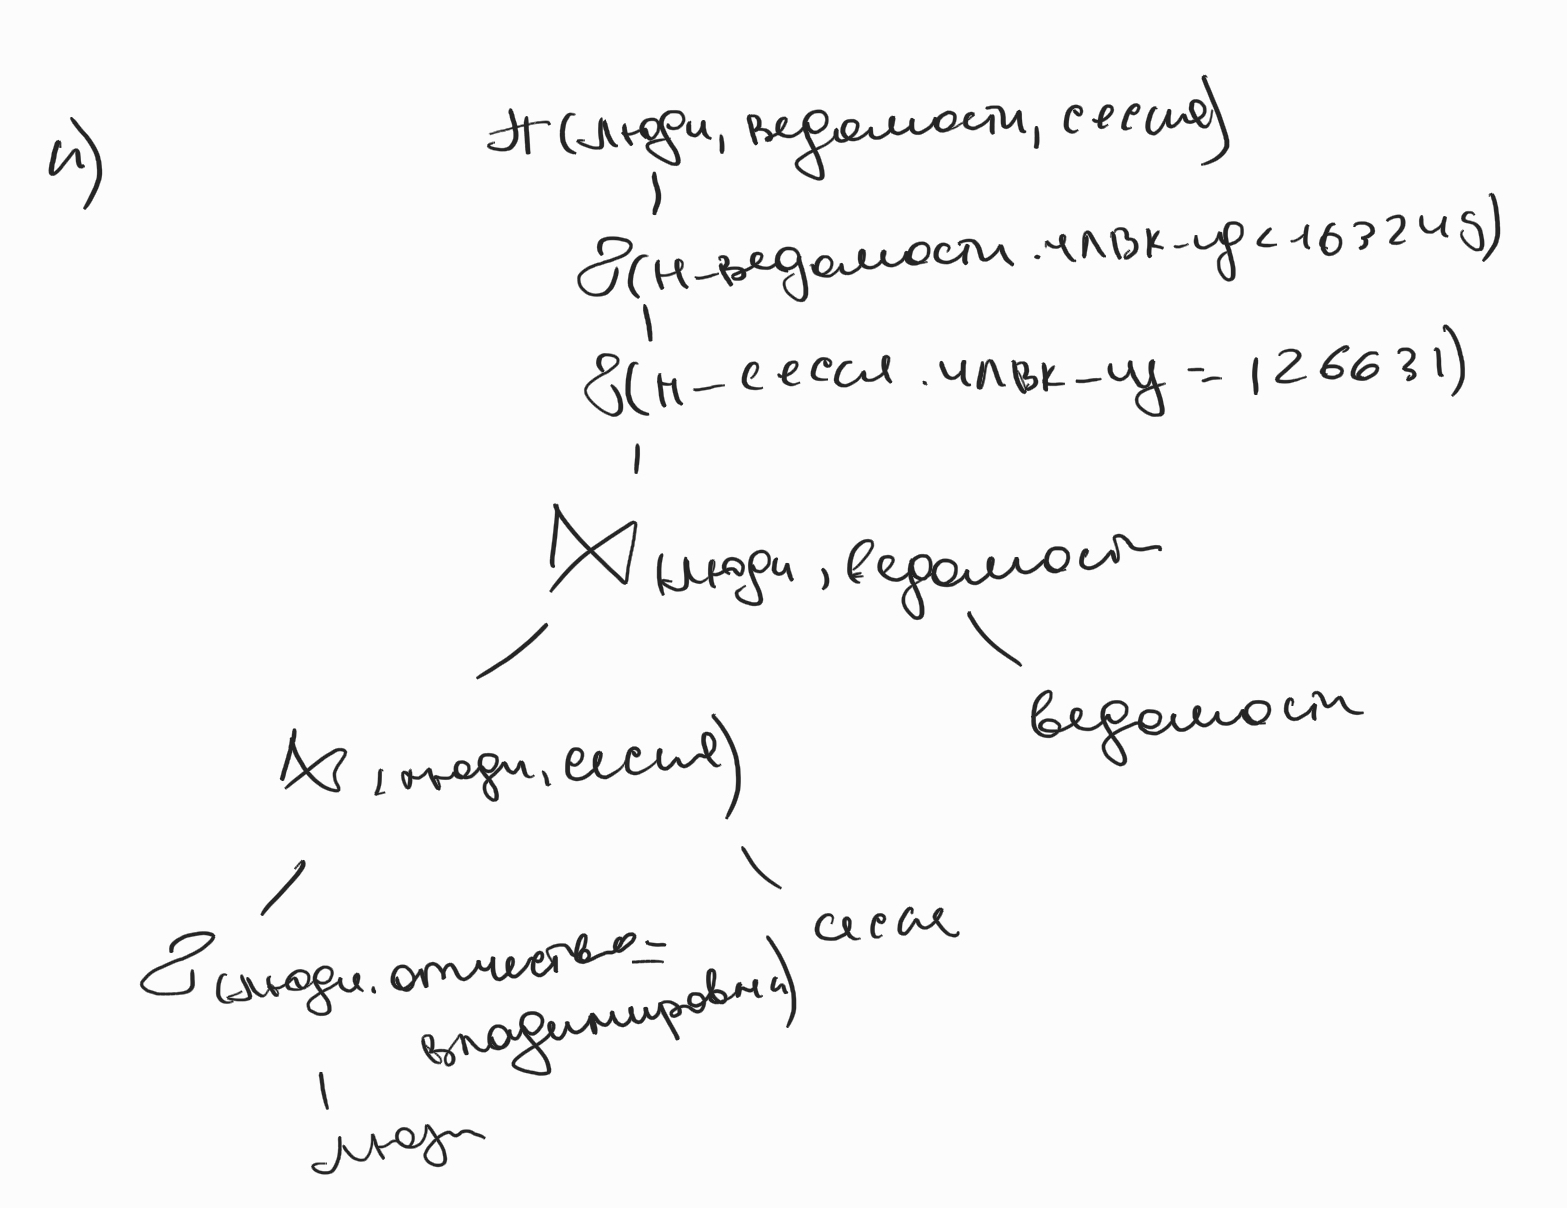 и)
π(люди, ведомости, сессия)
σ(н-ведомости.члвк-ид < 163249)
σ(н-сессия.члвк-ид = 126631)
⋈ (люди, ведомости
ведомости
⋈ (люди, сессия)
сессия
σ(люди.отчество=
владимировна)
люди